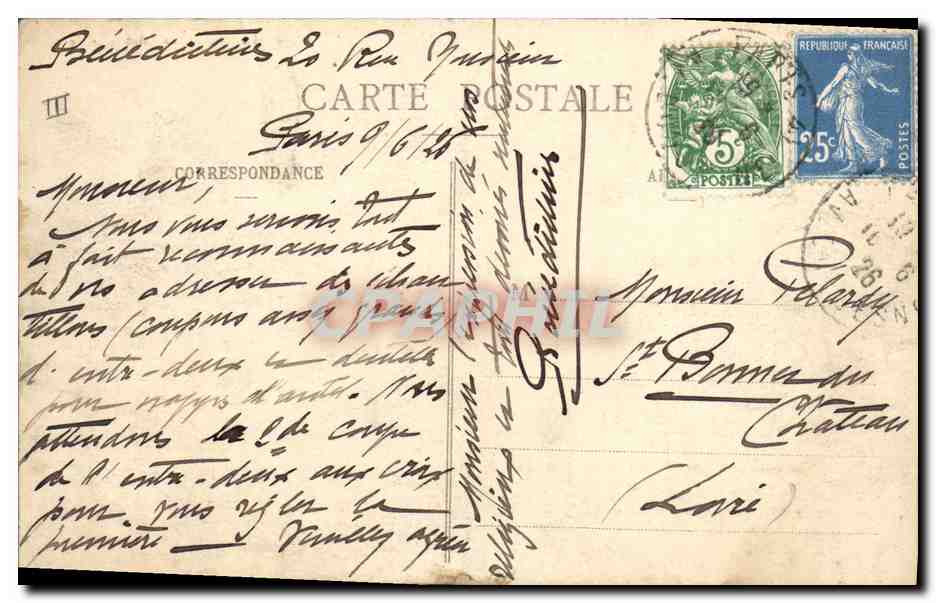 Bénédictines 20 Rue
CARTE POSTALE
III
Paris 9/6/26
CORRESPONDANCE
Monsieur,
Nous vous serions tout
à fait reconnaissantes
de nos adresser des échan
tillons (coupons assez grands)
d'entre-deux en dentelle
pour nappes d'autel. Nous
attendons la 2de coupe
de l'entre-deux aux croix
pour vous régler la
première — Veuillez agréer
Monsieur l'expression de nos
religieux et
Bénédictines
5c
POSTES
REPUBLIQUE FRANÇAISE
25c
POSTES
Monsieur
St Bonnet du
Château
(Loire)
CAPHIL